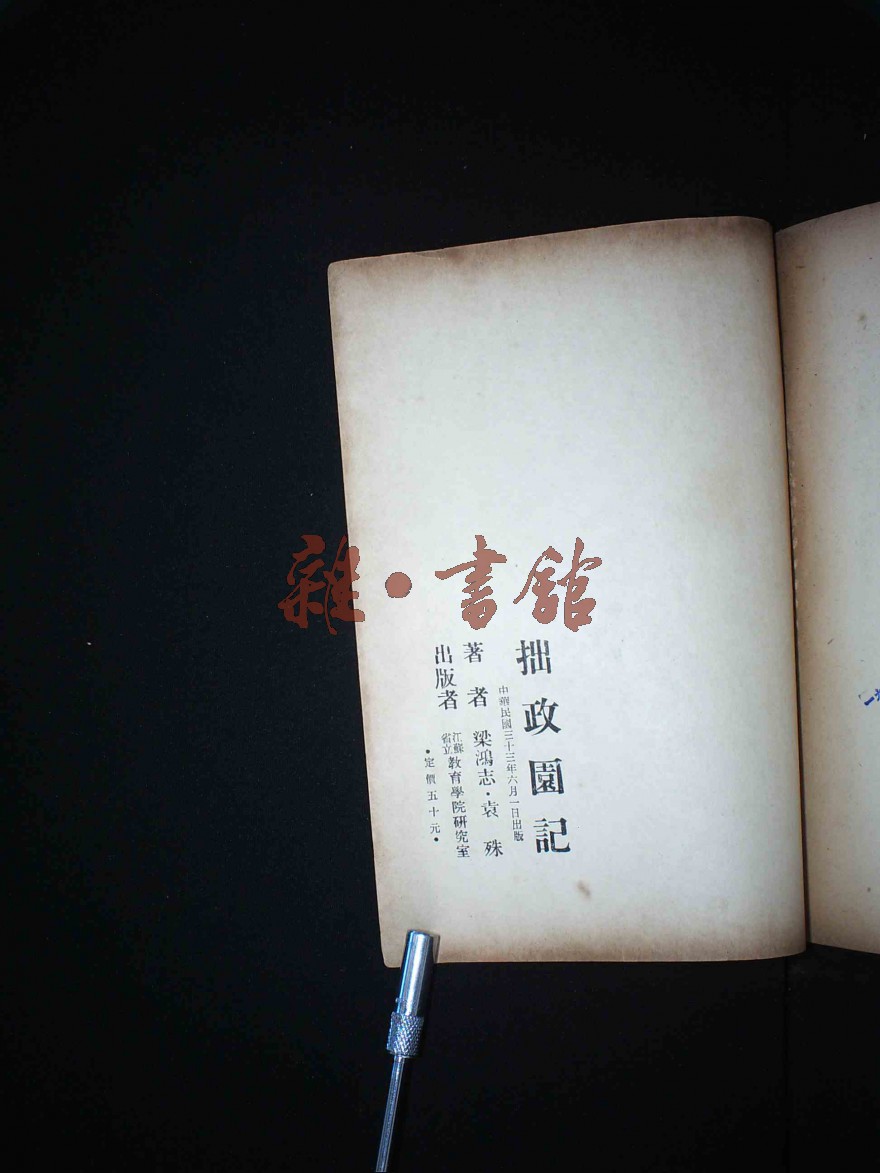 雜·書館
拙政園記
中華民國三十三年六月一日出版
著者 梁鴻志·袁殊
出版者 江蘇省立教育學院研究室
·定價五十元·